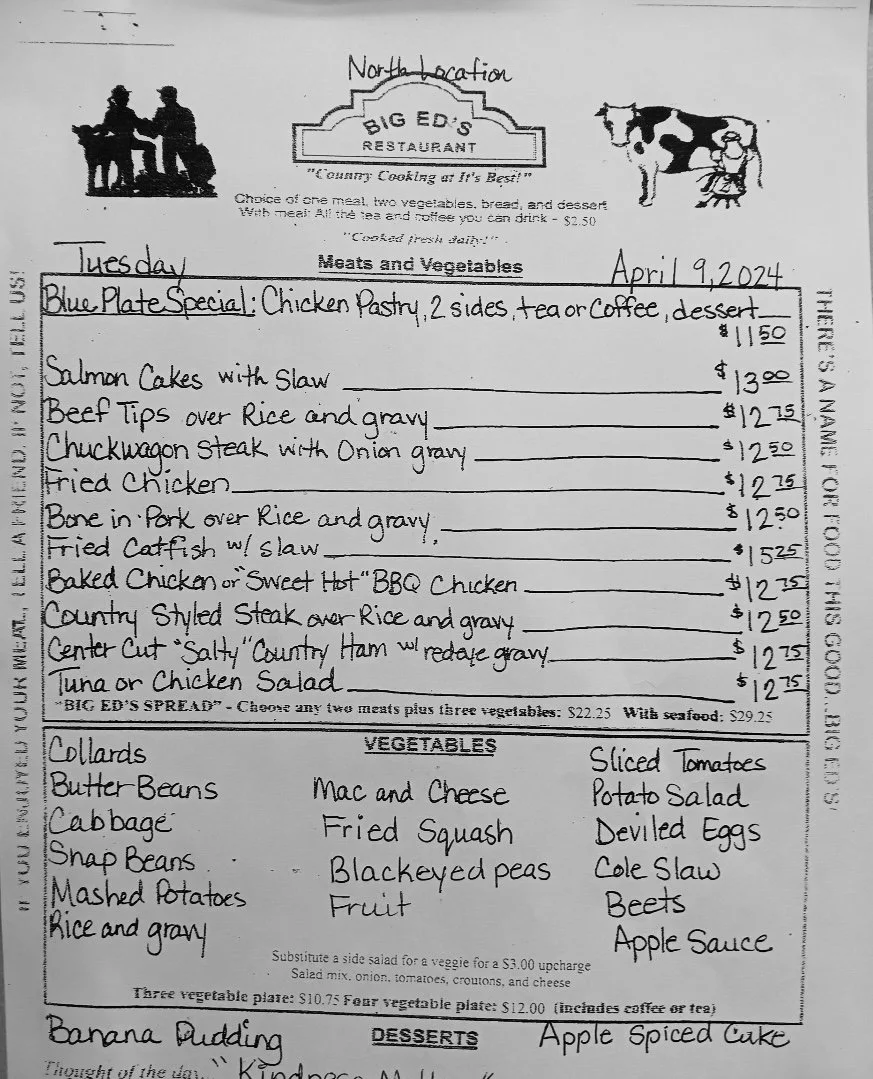 North Location
BIG ED'S
RESTAURANT
"Country Cooking at It's Best!"
Choice of one meat, two vegetables, bread, and dessert
With meal: All the tea and coffee you can drink - $2.50
"Cooked fresh daily!"
Tuesday
Meats and Vegetables
April 9, 2024
Blue Plate Special: Chicken Pastry, 2 sides, tea or Coffee, dessert
$11.50
Salmon Cakes with Slaw $13.00
Beef Tips over Rice and gravy $12.75
Chuckwagon Steak with Onion gravy $12.50
Fried Chicken $12.75
Bone in Pork over Rice and gravy $12.50
Fried Catfish w/ slaw $15.25
Baked Chicken or "Sweet Hot" BBQ Chicken $12.75
Country Styled Steak over Rice and gravy $12.50
Center Cut "Salty" Country Ham w/ redeye gravy $12.75
Tuna or Chicken Salad $12.75
"BIG ED'S SPREAD" - Choose any two meats plus three vegetables: $22.25 With seafood: $29.25
VEGETABLES
Collards
Butter Beans
Cabbage
Snap Beans
Mashed Potatoes
Rice and gravy
Mac and Cheese
Fried Squash
Blackeyed peas
Fruit
Sliced Tomatoes
Potato Salad
Deviled Eggs
Cole Slaw
Beets
Apple Sauce
Substitute a side salad for a veggie for a $3.00 upcharge
Salad mix, onion, tomatoes, croutons, and cheese
Three vegetable plate: $10.75 Four vegetable plate: $12.00 (includes coffee or tea)
DESSERTS
Banana Pudding
Apple Spiced Cake
Thought of the day... "Kindness
IF YOU ENJOYED YOUR MEAL, TELL A FRIEND. IF NOT, TELL US!
THERE'S A NAME FOR FOOD THIS GOOD...BIG ED'S!